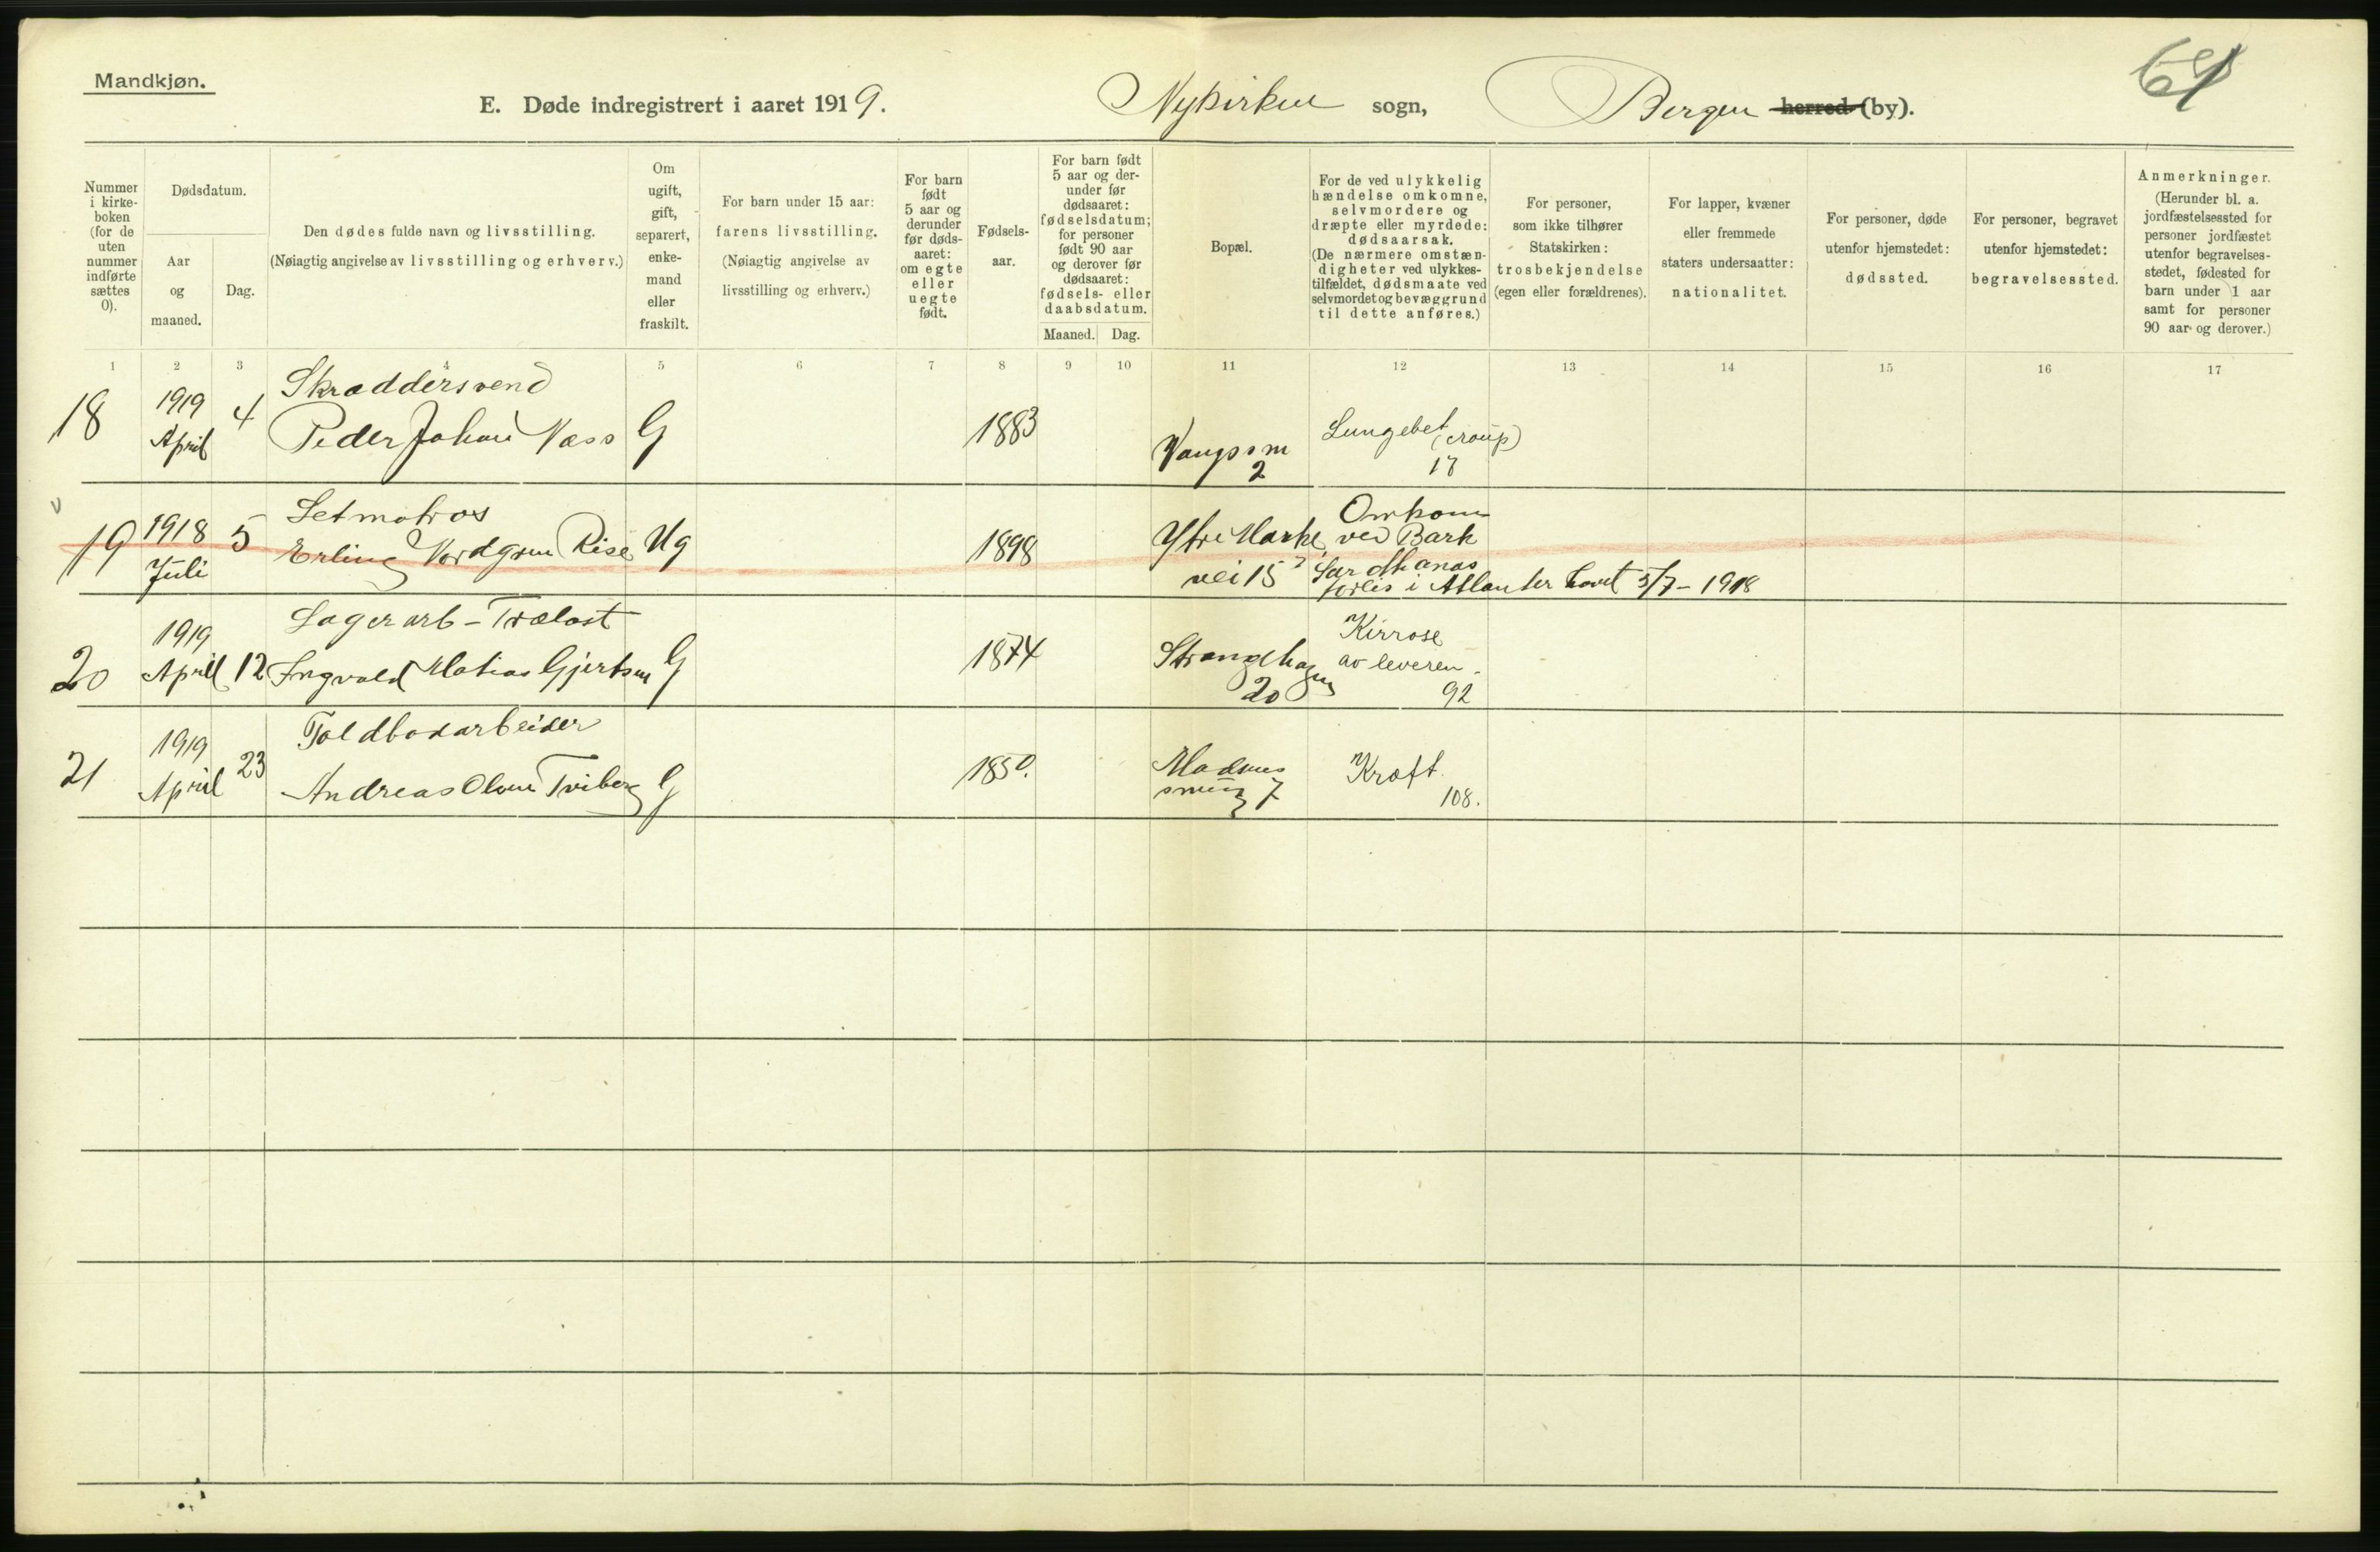 Mandkjøn.
E. Døde indregistrert i aaret 1919. Nykirken sogn, Bergen herred (by).
Nummer i kirke-
boken
(for de
uten
nummer
indførte
sættes
0).
Dødsdatum.
Aar
og
maaned.
Dag.
Den dødes fulde navn og livsstilling.
(Nøiagtig angivelse av livsstilling og erhverv.)
Om
ugift,
gift,
separert,
enke-
mand
eller
fraskilt.
For barn under 15 aar:
farens livsstilling.
(Nøiagtig angivelse av
livsstilling og erhverv.)
For barn
født
5 aar og
derunder
før døds-
aaret:
om egte
eller
uegte
født.
Fødsels-
aar.
For barn født
5 aar og der-
under før
dødsaaret:
fødselsdatum;
for personer
født 90 aar
og derover før
dødsaaret:
fødsels- eller
daabsdatum.
Maaned. Dag.
Bopæl.
For de ved ulykkelig
hændelse omkomne,
selvmordere og
dræpte eller myrdede:
dødsaarsak.
(De nærmere omstæn-
digheter ved ulykkes-
tilfældet, dødsmaate ved
selvmordet og bevæggrund
til dette anføres.)
For personer,
som ikke tilhører
Statskirken:
trosbekjendelse
(egen eller forældrenes).
For lapper, kvæner
eller fremmede
staters undersaatter:
nationalitet.
For personer, døde
utenfor hjemstedet:
dødssted.
For personer, begravet
utenfor hjemstedet:
begravelsessted.
Anmerkninger.
(Herunder bl. a.
jordfæstelsessted for
personer jordfæstet
utenfor begravelses-
stedet, fødested for
barn under 1 aar
samt for personer
90 aar og derover.)
1 2 3 4 5 6 7 8 9 10 11 12 13 14 15 16 17
Skræddersvend
18 1919 April 4 Peder Johan Næss G 1883 Vangssm 2 Lungebet (croup) 17
Letmatros
19 1918 Juli 5 Erling Nordgren Rise Ug 1898 Ytre Marke vei 15 Omkom
ved Bark
forlis i Atlanter havet 5/7 - 1918
Lagerarb - Trælast
20 1919 April 12 Ingvald Matias Gjertsen G 1874 Strangehagen 20 Kirrose
av leveren
92
Toldbodarbeider
21 1919 April 23 Andreas Olsen Tviberg G 1850. Madam
smug 7 Kræft.
108.